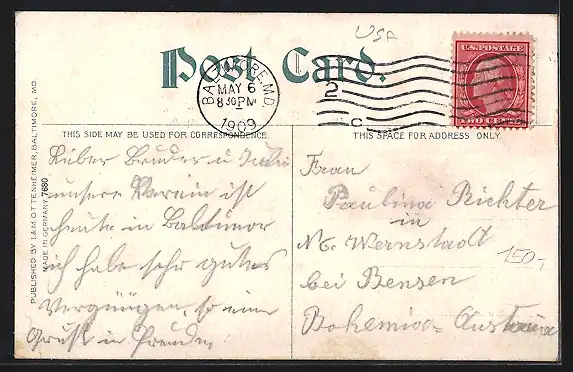 USA
Post Card.
BALTIMORE, MD.
MAY 6
8 30 PM
1909
2
C
U.S. POSTAGE
TWO CENTS
THIS SIDE MAY BE USED FOR CORRESPONDENCE.
THIS SPACE FOR ADDRESS ONLY.
PUBLISHED BY I.& M. OTTENHEIMER, BALTIMORE, MD.
MADE IN GERMANY 7680
Lieber Bruder u
unsere Verein ist
heute in Baltimor
ich habe sehr gutes
Vergnügen, so eine
Gruß in Freuden
Frau
Paulina Richter
in
No. Wernstadt
bei Bensen
Bohemia-Austria
150,-